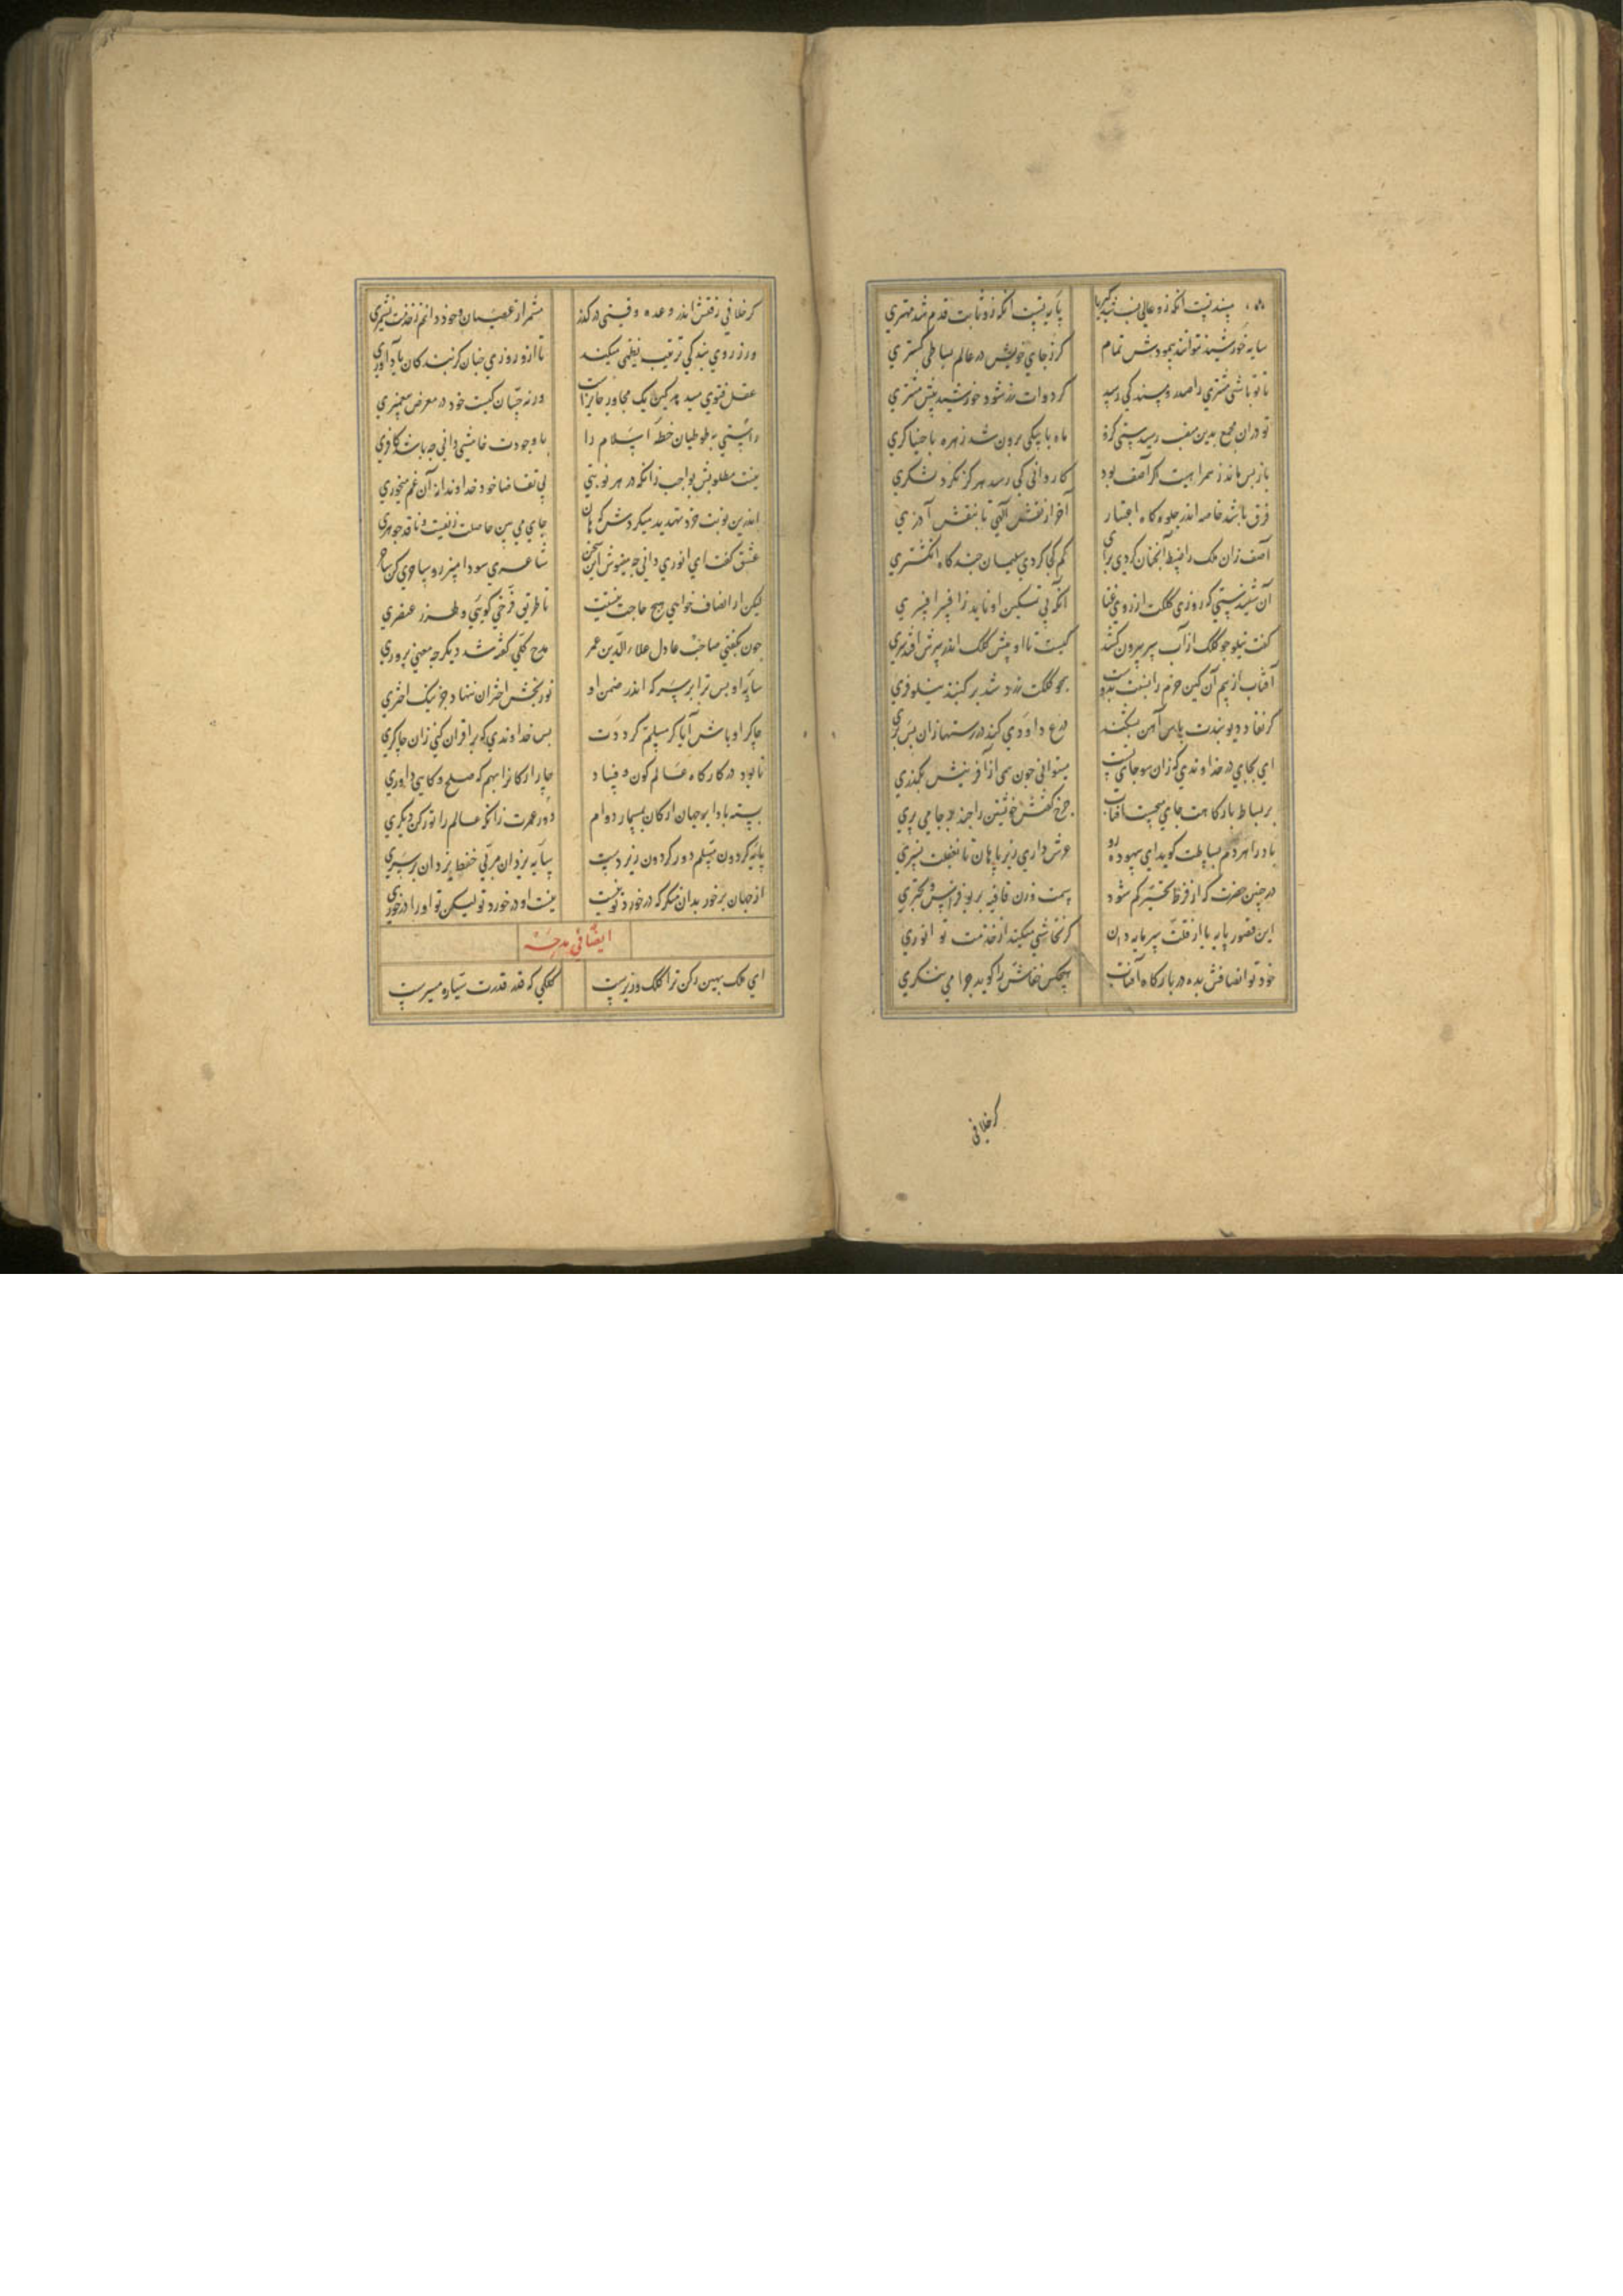 مسندتست انکه زو عالی نسب شد کبریا پایه تست انکه زو ثابت قدم شد مهتری
سایه خورشید نتواند پیمودش تمام کر ز جای خویش در عالم بساطی کستری
تا تو باشی مشتری را صدر و مسند کی رسد کر دوات زر شود خورشید پیش مشتری
تو دران مجمع بدین منصب رسیدستی کزو ماه با پیکی برون شد زهره با خنیاگری
باز بس ماند ز همراهیت اکر آصف بود کاروانی کی رسد هرکز بکرد لشکری
فرق باشد خاصه اندر جلوه کاه اعتبار آخر از نقش الهی تا بنقش آذری
آصف ار آن ملک را ضبط آنچنان کردی برای کم کجا کردی سلیمان چند کاه انکشتری
آن شنیدستی که روزی کلکت از روی عتاب آنکه بی تسکین او ناید ز افسر افسری
کفت نیلوفر جو کلک از آب سر بیرون کشد کیست تا او پیش کلک اندر سرش افتد سری
آفتاب از بیم آن کین جرم را نسبت بدوست همجو کلکت زرد شد بر کنبد نیلوفری
کر نفاد دیوبندت پاس آهن بشکند درع داودی کنند در رستها زان پس پری
ای بجایی در خداوندی که زان سو جای نیست میتوانی جون همی از آفرینش بکذری
بر بساط بارکاهت جای میجست آفتاب جرخ کفتش خویشتن را چند هر جا می بری
باد را هر دم بساطت کوید ای بیهوده رو عرش داری زیر پا هان تا بغفلت نسپری
در جنین حضرت که از فرط تحیر کم شود سمت وزن قافیه بر بوفراس و بحتری
این قصور پایه یا از قلت سرمایه دان کر تحاشی میکند از خدمت تو انوری
خود تو انصافش بده در بارکاه آفتاب هیجکس خفاش را کوید جرا می ننکری
کر خلافی
کر خلافی رفتش اندر وعده وقتی در کذر مشمر از عصیان وجود دانم ز خدمت نشمری
ور ز روی بندکی ترتیب نظمی میکند تا از و روزی جنان کز بندکان یاد آوری
عقل فتوی میدهد کین یک مجاور جایز است ورنه حسان کیست خود در معرض پیغمبری
راستی به طوطیان خطه اسلام را با وجودت خامشی دانی جه باشد کافری
نیست مطلوبش بواجب زانکه در هر نوبتی بی تقاضا خود خداوندانه آن غم میخوری
اندرین نوبت خرد تهدید میکردش که هان جای می بین حاصلت نفیست و ناقد جوهری
عشق کفت ای انوری دانی جه مینوش این سخن شاعری سودا مپز رو ساحری کن ساحری
لیکن ار انصاف خواهی هیج حاجت نیستت تا طریق فرخی کویی و طرز عنصری
جون بکفتی صاحب عادل علاءالدین عمر مدح کلی کفته شد دیکر جه معنی پروری
سایه او بس ترا بر سر که اندر ضمن او نور بخش اختران ننهاد جز نیک اختری
جاکر او باش آیا کر مسلم کرددت بس خداوندی که بر اقران کنی زان جاکری
تا بود در کارکاه عالم کون و فساد جار ارکان را بهم که صلح و کاهی داوری
بسته بادا بر جهان ارکان بمسمار دوام دور عمرت زانکه عالم را تو رکن دیکری
پایه کردون مسلم دور کردون زیر دست سایه یزدان مربی حفظ یزدان بر سری
از جهان برخور بدان منکر که در خورد تو نیست نیست او در خورد تو لیکن تو او را در خوری
ایضا فی مدحه
ای ملک بهین رکن ترا کلک وزیرست کلکی که قدر قدرت و سیاره مسیرست